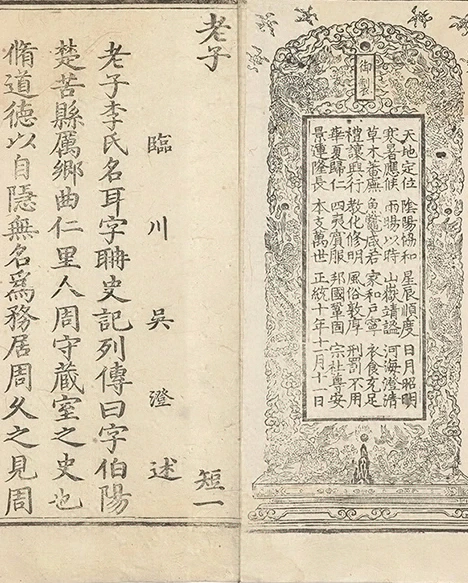 御製
天地定位 陰陽協和 星辰順度 日月昭明
寒暑應候 雨暘以時 山嶽靖謐 河海澄清
草木蕃廡 魚龍咸若 家和戶寧 衣食充足
禮讓興行 教化修明 風俗敦厚 刑罰不用
華夏歸仁 四夷賓服 邦國鞏固 宗社尊安
景運隆長 本支萬世 正統十年十一月十一日
老子 短一
臨川吳澄述
老子李氏名耳字聃史記列傳曰字伯陽
楚苦縣厲鄉曲仁里人周守藏室之史也
脩道德以自隱無名爲務居周久之見周